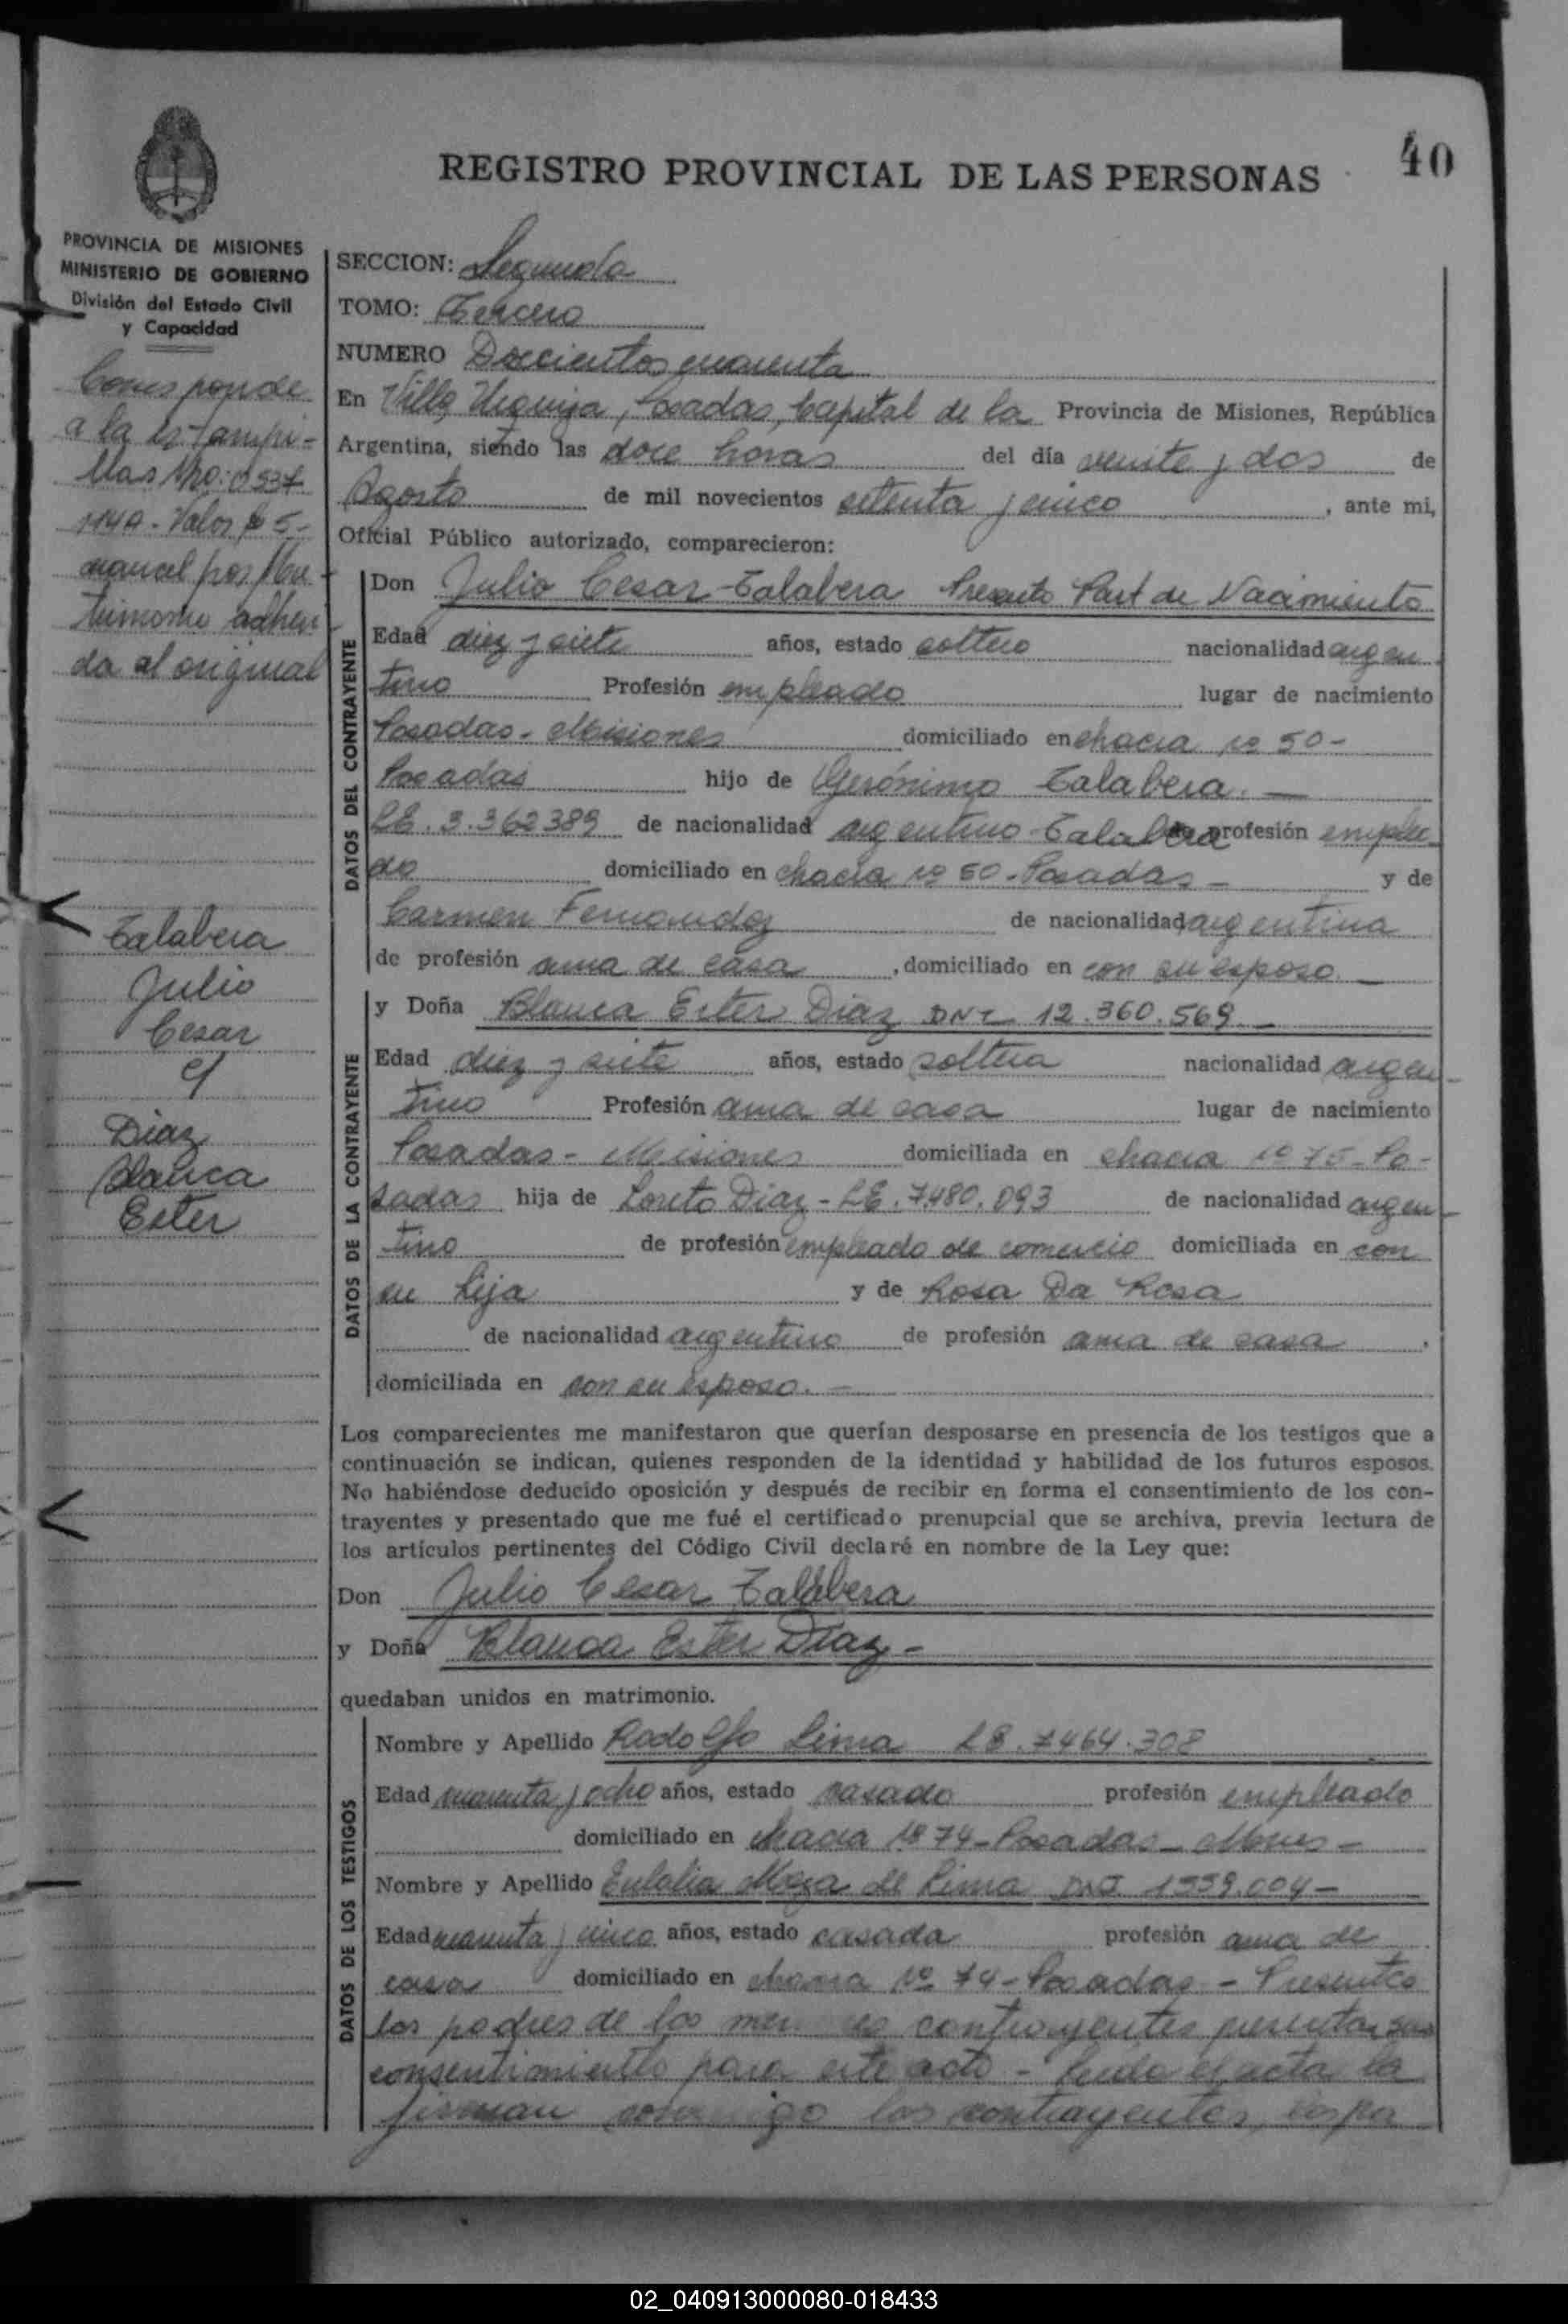 40
REGISTRO PROVINCIAL DE LAS PERSONAS
PROVINCIA DE MISIONES
MINISTERIO DE GOBIERNO
División del Estado Civil
y Capacidad
Corresponde
a la estampi-
llas Nro: 0537
114A - Valor $ 5-
arancel por Ma-
trimonio adheri
da al original
Talabera
Julio
Cesar
c/
Diaz
Blanca
Ester
SECCION: Segunda
TOMO: Tercero
NUMERO Doscientos cuarenta
En Villa Urquiza, Posadas, Capital de la Provincia de Misiones, República
Argentina, siendo las doce horas del día veinte y dos de
Agosto de mil novecientos setenta y cinco, ante mi,
Oficial Público autorizado, comparecieron:
DATOS DEL CONTRAYENTE
Don Julio Cesar Talabera Presento Part de Nacimiento
Edad diez y siete años, estado soltero nacionalidad argen
tino Profesión empleado lugar de nacimiento
Posadas - Misiones domiciliado en chacra no 50-
Posadas hijo de Gerónimo Talabera. —
LE. 3.362389 de nacionalidad argentino Talabera profesión emplea
do domiciliado en chacra no 50 - Posadas - y de
Carmen Fernandez de nacionalidad argentina
de profesión ama de casa, domiciliado en con su esposo. —
DATOS DE LA CONTRAYENTE
y Doña Blanca Ester Diaz DNI 12.360.569 —
Edad diez y siete años, estado soltera nacionalidad argen-
tino Profesión ama de casa lugar de nacimiento
Posadas - Misiones domiciliada en chacra no 75 - Po-
sadas hija de Loreto Diaz - LE. 7.480.093 de nacionalidad argen-
tino de profesión empleado de comercio domiciliada en con
su hija y de Rosa Da Rosa
de nacionalidad argentino de profesión ama de casa.
domiciliada en con su esposo. —
Los comparecientes me manifestaron que querían desposarse en presencia de los testigos que a
continuación se indican, quienes responden de la identidad y habilidad de los futuros esposos.
No habiéndose deducido oposición y después de recibir en forma el consentimiento de los con-
trayentes y presentado que me fué el certificado prenupcial que se archiva, previa lectura de
los artículos pertinentes del Código Civil declaré en nombre de la Ley que:
Don Julio Cesar Talabera
y Doña Blanca Ester Diaz -
quedaban unidos en matrimonio.
DATOS DE LOS TESTIGOS
Nombre y Apellido Rodolfo Lima LE. 7464.308
Edad cuarenta y ocho años, estado casado profesión empleado
domiciliado en chacra no 74 - Posadas - Mnes -
Nombre y Apellido Eulalia Meza de Lima DNI 1559.004 -
Edad cuarenta y cinco años, estado casada profesión ama de
casa domiciliado en chacra no 74 - Posadas - Presentes
los padres de los contrayentes presentan sus
consentimiento para este acto - Leida el acta la
firman los contrayentes,
02_040913000080-018433